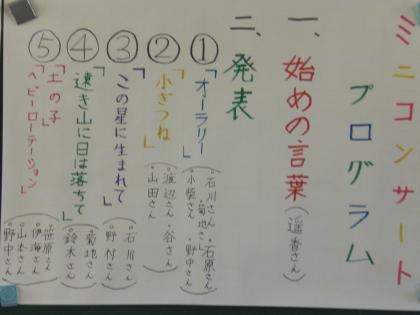 ミニコンサート
プログラム
一、始めの言葉(遥香さん)
二、発表
①「オーラリー」
(。石川さん 。石原さん
。菊地さん
。小柴さん 。野中さん)
②「小ぎつね」
(。渡辺さん 。谷さん
。山田さん)
③「この星に生まれて」
(。石川さん
。野村さん)
④「遠き山に日は落ちて」
(。菊地さん
。鈴木さん)
⑤「土の子」
「ヘビーローテーション」
(。笹原さん
。伊海さん
。山本さん
。野中さん)